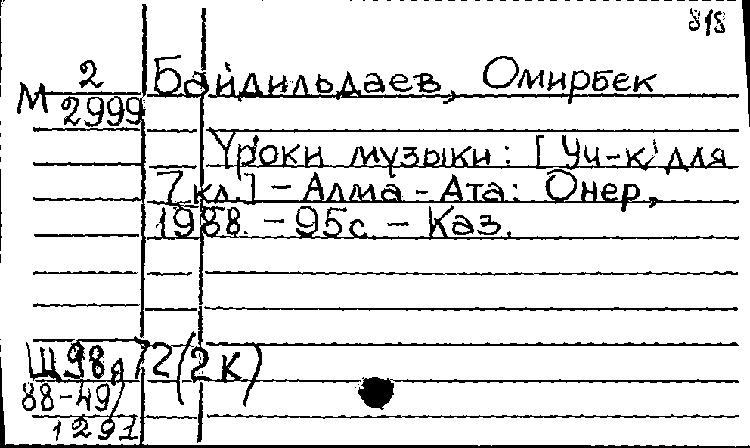 818
М 2/2999
Байдильдаев, Омирбек
Уроки музыки: [Уч-к для
7 кл.] - Алма - Ата: Онер,
1988. - 95с. - Каз.
Щ98я72(2К)
88-49)
1291